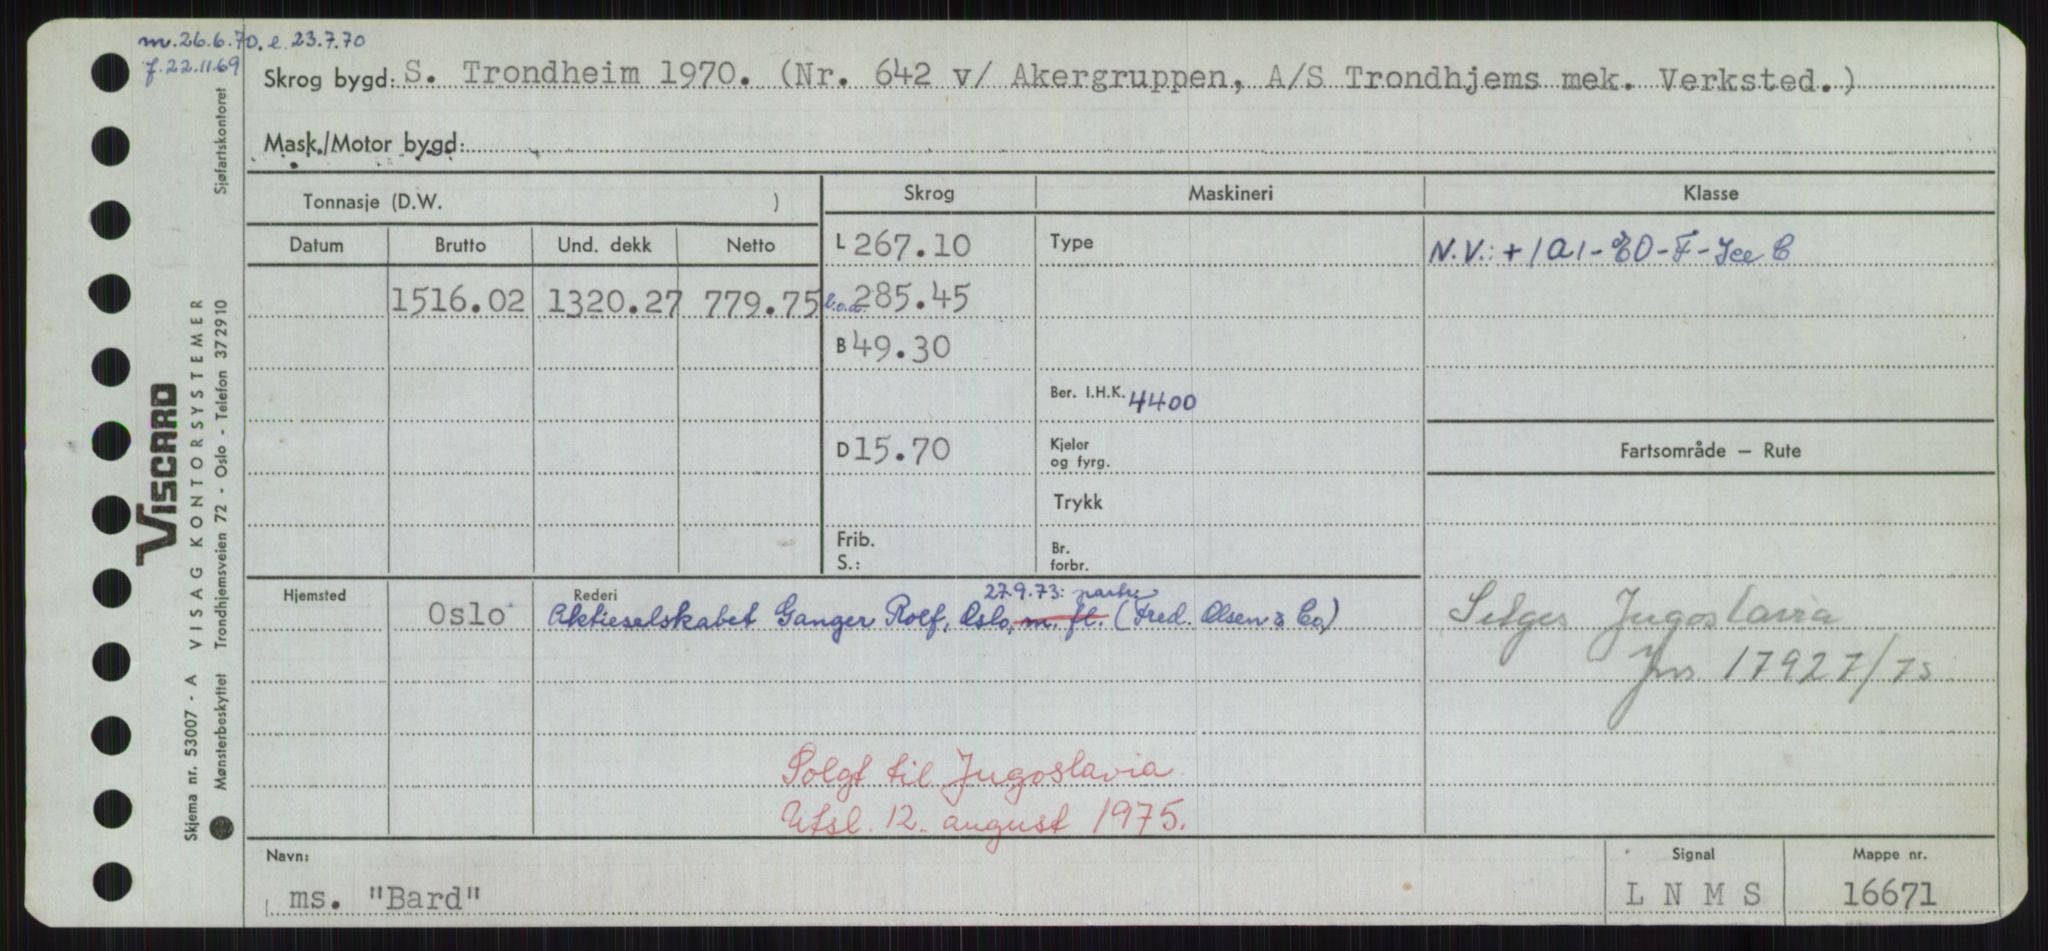 m. 26.6.70. l. 23.7.70
f. 22.11.69
Skrog bygd: S. Trondheim 1970. (Nr. 642 v/ Akergruppen, A/S Trondhjems mek. Verksted.)
Mask./Motor bygd:
Tonnasje (D.W. )
Skrog
Maskineri
Klasse
Datum
Brutto
Und. dekk
Netto
L 267.10
Type
N.V.: + 1A1 - EO - F - Ice C
1516.02 1320.27 779.75
l.o.a. 285.45
B 49.30
Ber. I.H.K. 4400
D 15.70
Kjeler
og fyrg.
Fartsområde — Rute
Trykk
Frib.
S.:
Br.
forbr.
Hjemsted
Oslo
Rederi
27.9.73:
Aktieselskabet Ganger Rolf, Oslo, m. fl. (Fred. Olsen & Co.)
Selges Jugoslavia
Jnr 17927/75
Solgt til Jugoslavia
Utsl. 12. august 1975.
Navn:
ms. "Bard"
Signal
L N M S
Mappe nr.
16671
VISCARD
VISAG KONTORSYSTEMER
Trondhjemsveien 72 - Oslo - Telefon 372910
Sjøfartskontoret
Skjema nr. 53007 - A
Mønsterbeskyttet